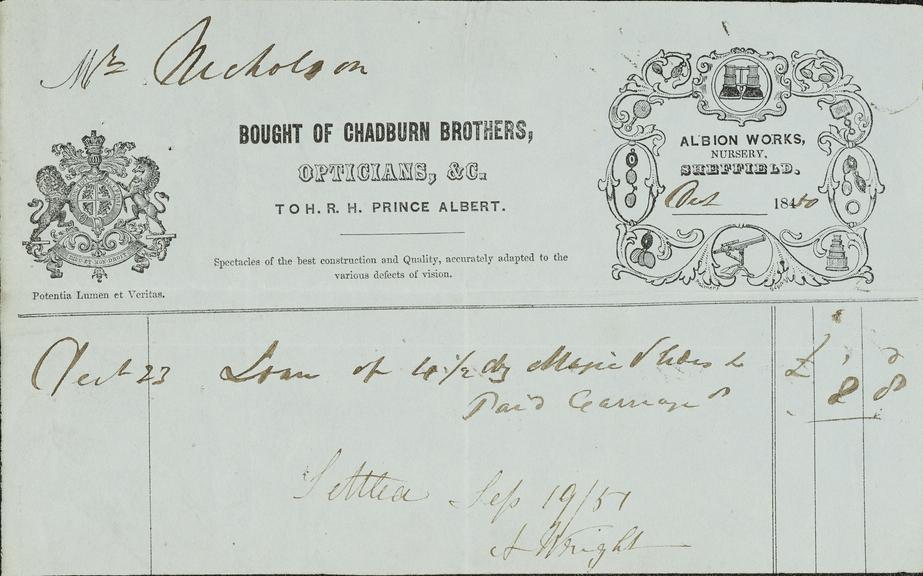 Mr. Nicholson
BOUGHT OF CHADBURN BROTHERS,
OPTICIANS, &C.
TO H. R. H. PRINCE ALBERT.
Spectacles of the best construction and Quality, accurately adapted to the
various defects of vision.
Potentia Lumen et Veritas.
ALBION WORKS,
NURSERY,
SHEFFIELD.
Oct 1850
Oct 23 Loan of 4 1/2 dz Magic Slides £
Paid Carriage 8
Settled Sep 19/51
A Wright